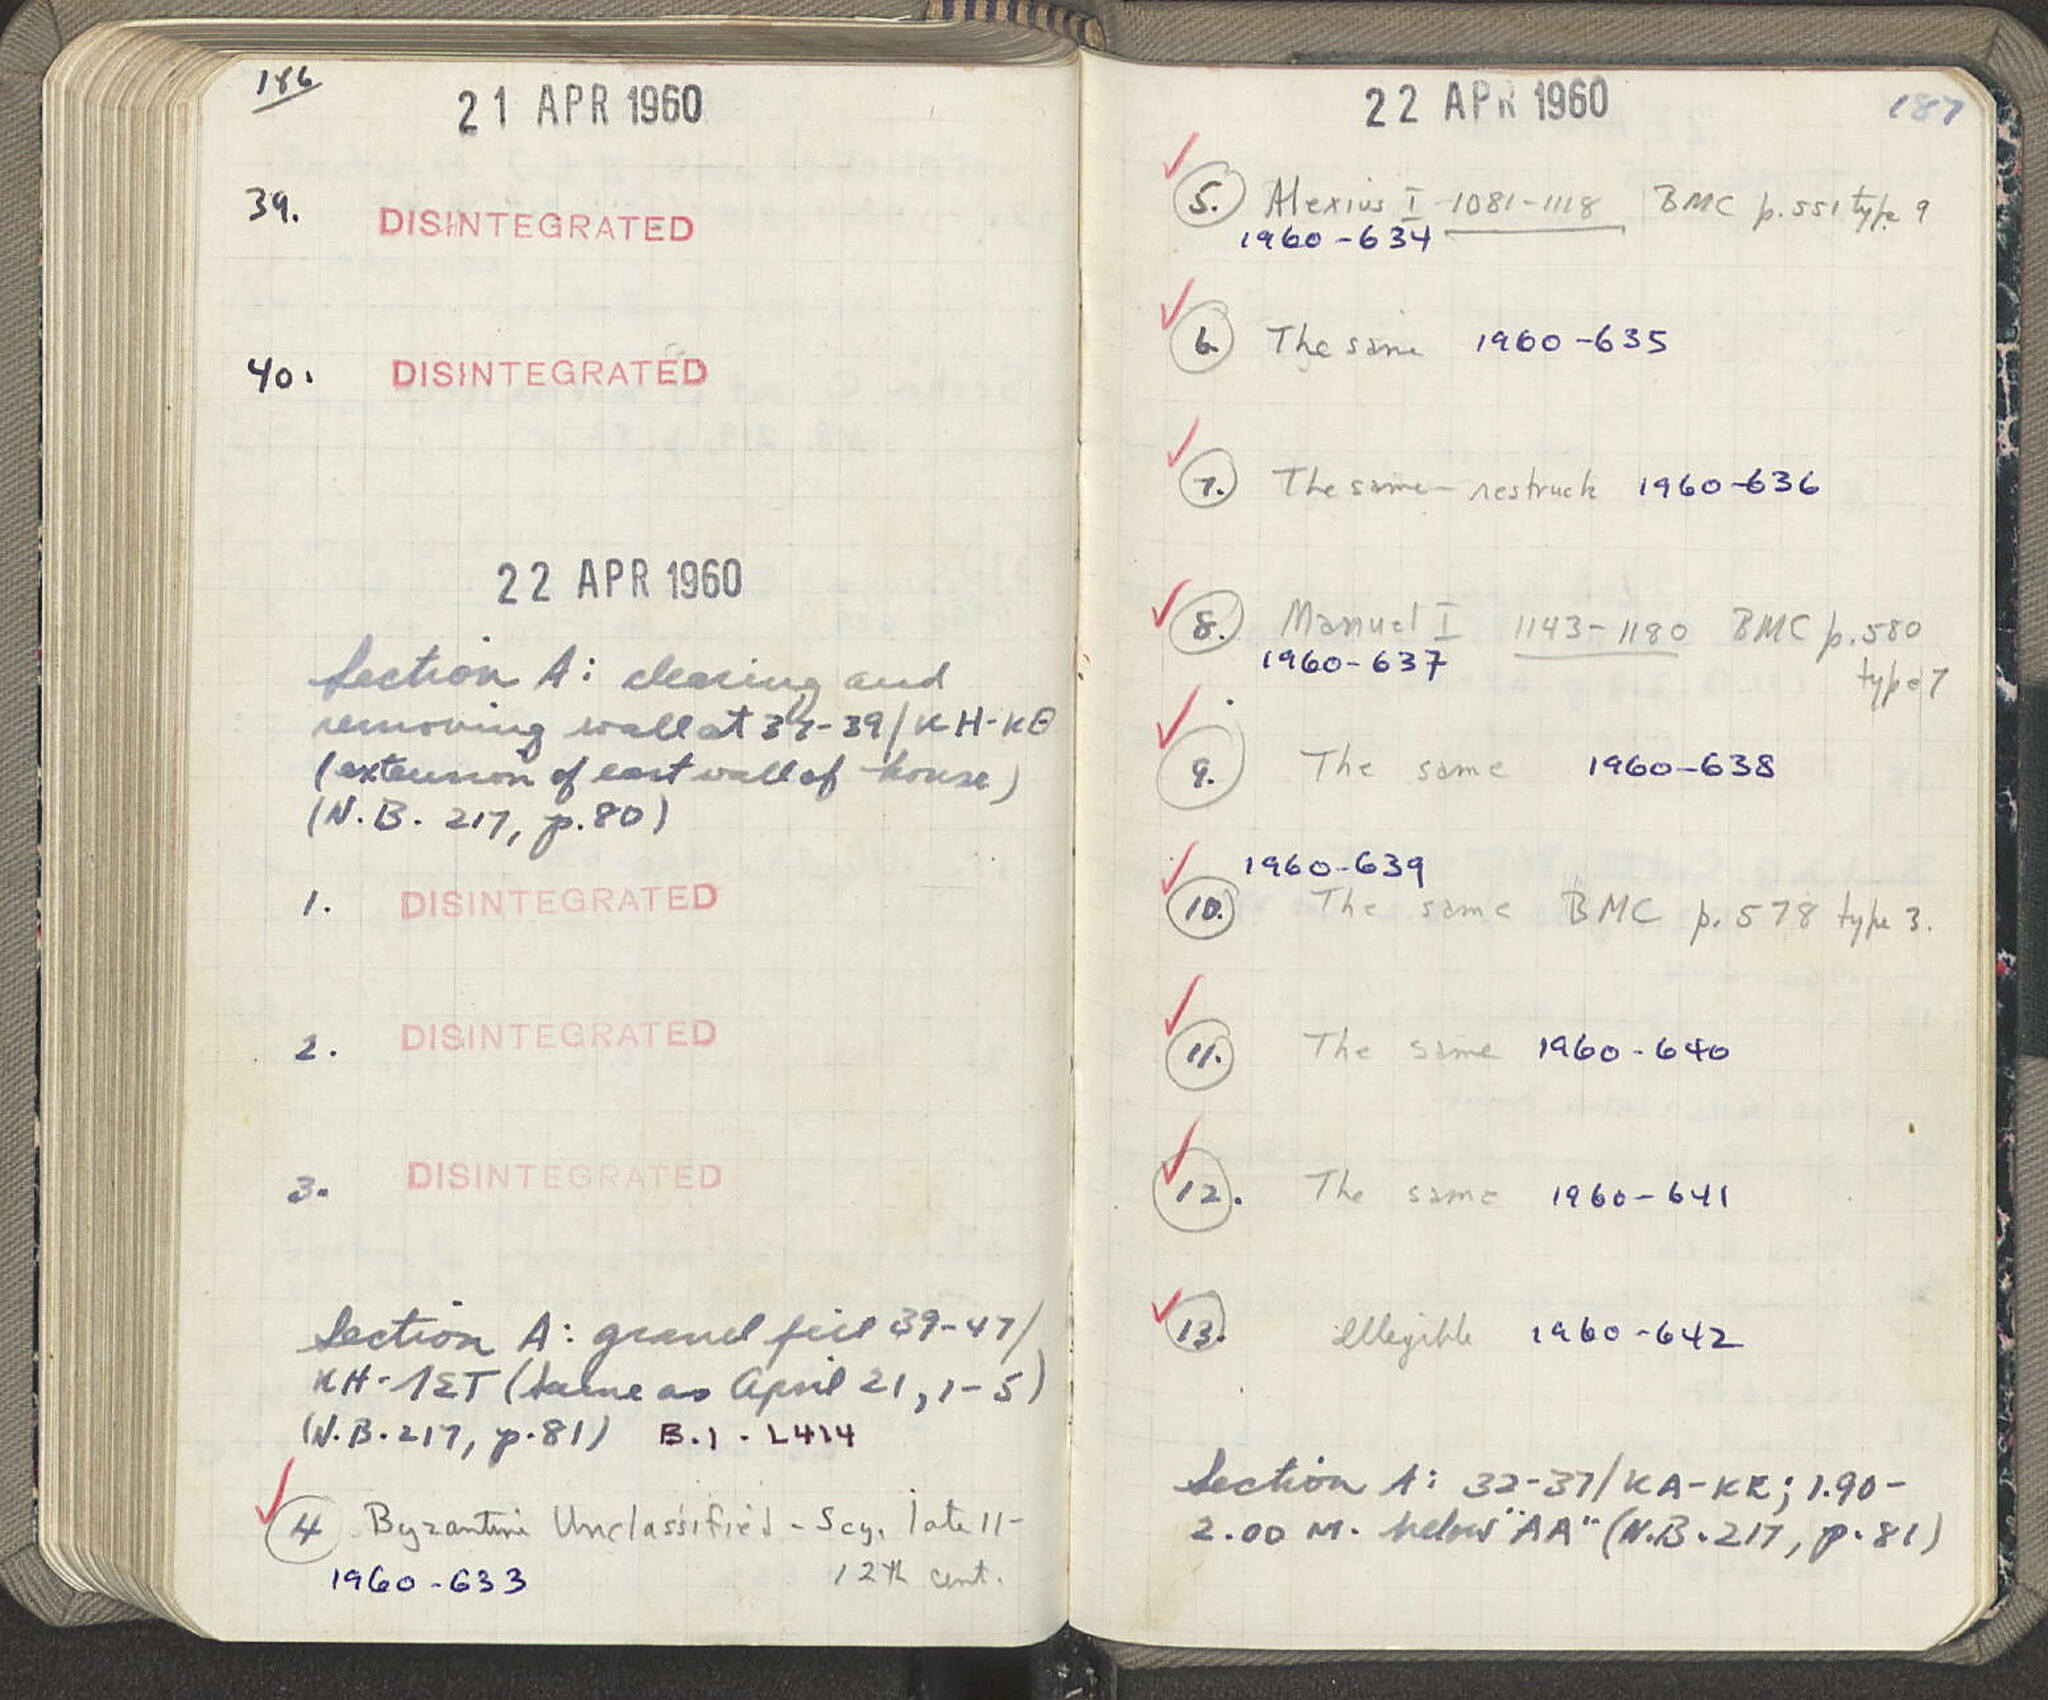 186
21 APR 1960
39. DISINTEGRATED
40. DISINTEGRATED
22 APR 1960
Section A: clearing and
removing wall at 37-39/ΚΗ-ΚΘ
(extension of east wall of house)
(N.B. 217, p.80)
1. DISINTEGRATED
2. DISINTEGRATED
3. DISINTEGRATED
Section A: gravel fill 39-47/
ΚΗ-ΛΣΤ (same as April 21, 1-5)
(N.B. 217, p.81) B.1 - L414
4 Byzantine Unclassified - Scy. late 11-
12th cent.
1960-633
187
22 APR 1960
5. Alexius I 1081-1118 BMC p.551 type 9
1960-634
6. The same 1960-635
7. The same - restruck 1960-636
8. Manuel I 1143-1180 BMC p.580
type 7
1960-637
9. The same 1960-638
1960-639
10. The same BMC p.578 type 3.
11. The same 1960-640
12. The same 1960-641
13. illegible 1960-642
Section A: 32-37/ΚΑ-ΚΕ; 1.90-
2.00 M. below "AA" (N.B. 217, p.81)